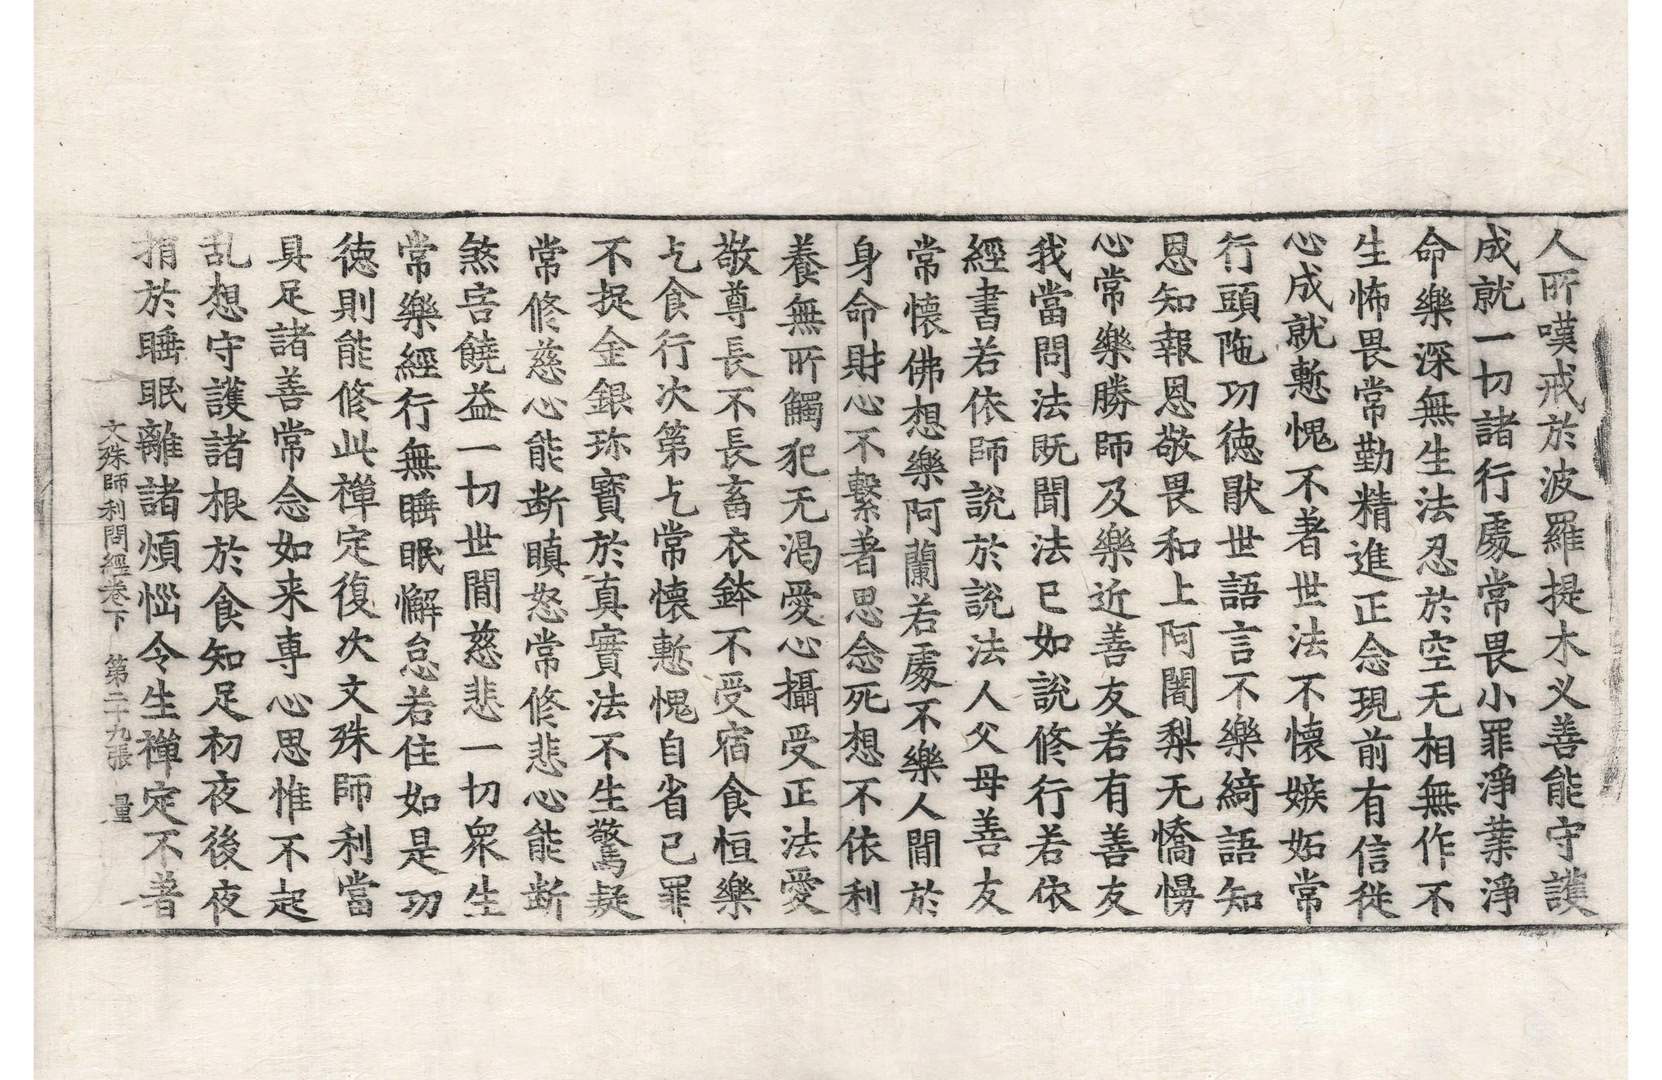 人所嘆戒於波羅提木义善能守護
成就一切諸行處常畏小罪淨業淨
命樂深無生法忍於空无相無作不
生怖畏常勤精進正念現前有信從
心成就慙愧不著世法不懷嫉妬常
行頭陁功徳猒世語言不樂綺語知
恩知報恩敬畏和上阿闍梨无憍慢
心常樂勝師及樂近善友若有善友
我當問法既聞法已如說修行若依
經書若依師說於說法人父母善友
常懷佛想樂阿蘭若處不樂人間於
身命財心不繫著思念死想不依利
養無所觸犯无渴愛心攝受正法愛
敬尊長不長畜衣鉢不受宿食恒樂
乞食行次第乞常懷慙愧自省己罪
不捉金銀珎寶於真實法不生驚疑
常修慈心能断瞋怒常修悲心能断
煞害饒益一切世間慈悲一切衆生
常樂經行無睡眠懈怠若住如是功
徳則能修此禪定復次文殊師利當
具足諸善常念如来専心思惟不起
乱想守護諸根於食知足初夜後夜
捎於睡眠離諸煩惱令生禪定不著
文殊師利問經卷下 第二十九張 量